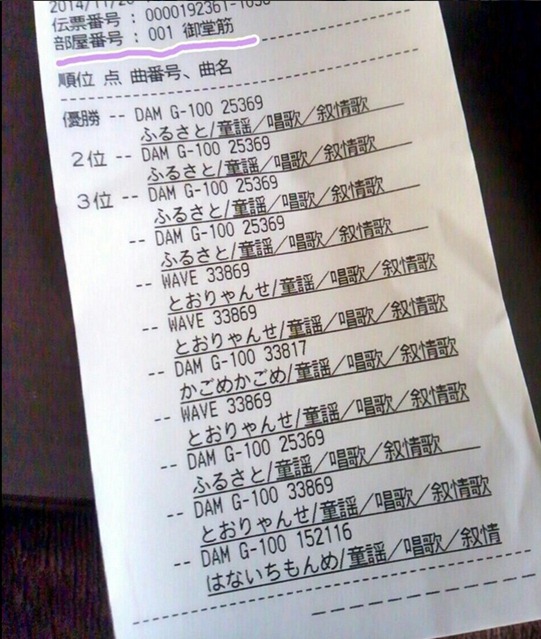 伝票番号 : 0000192361-1030
部屋番号 : 001 御堂筋
順位 点 曲番号、曲名
優勝 -- DAM G-100 25369
ふるさと/童謡/唱歌/叙情歌
2位 -- DAM G-100 25369
ふるさと/童謡/唱歌/叙情歌
3位 -- DAM G-100 25369
ふるさと/童謡/唱歌/叙情歌
-- DAM G-100 25369
ふるさと/童謡/唱歌/叙情歌
-- WAVE 33869
とおりゃんせ/童謡/唱歌/叙情歌
-- WAVE 33869
とおりゃんせ/童謡/唱歌/叙情歌
-- DAM G-100 33817
かごめかごめ/童謡/唱歌/叙情歌
-- WAVE 33869
とおりゃんせ/童謡/唱歌/叙情歌
-- DAM G-100 25369
ふるさと/童謡/唱歌/叙情歌
-- DAM G-100 33869
とおりゃんせ/童謡/唱歌/叙情歌
-- DAM G-100 152116
はないちもんめ/童謡/唱歌/叙情